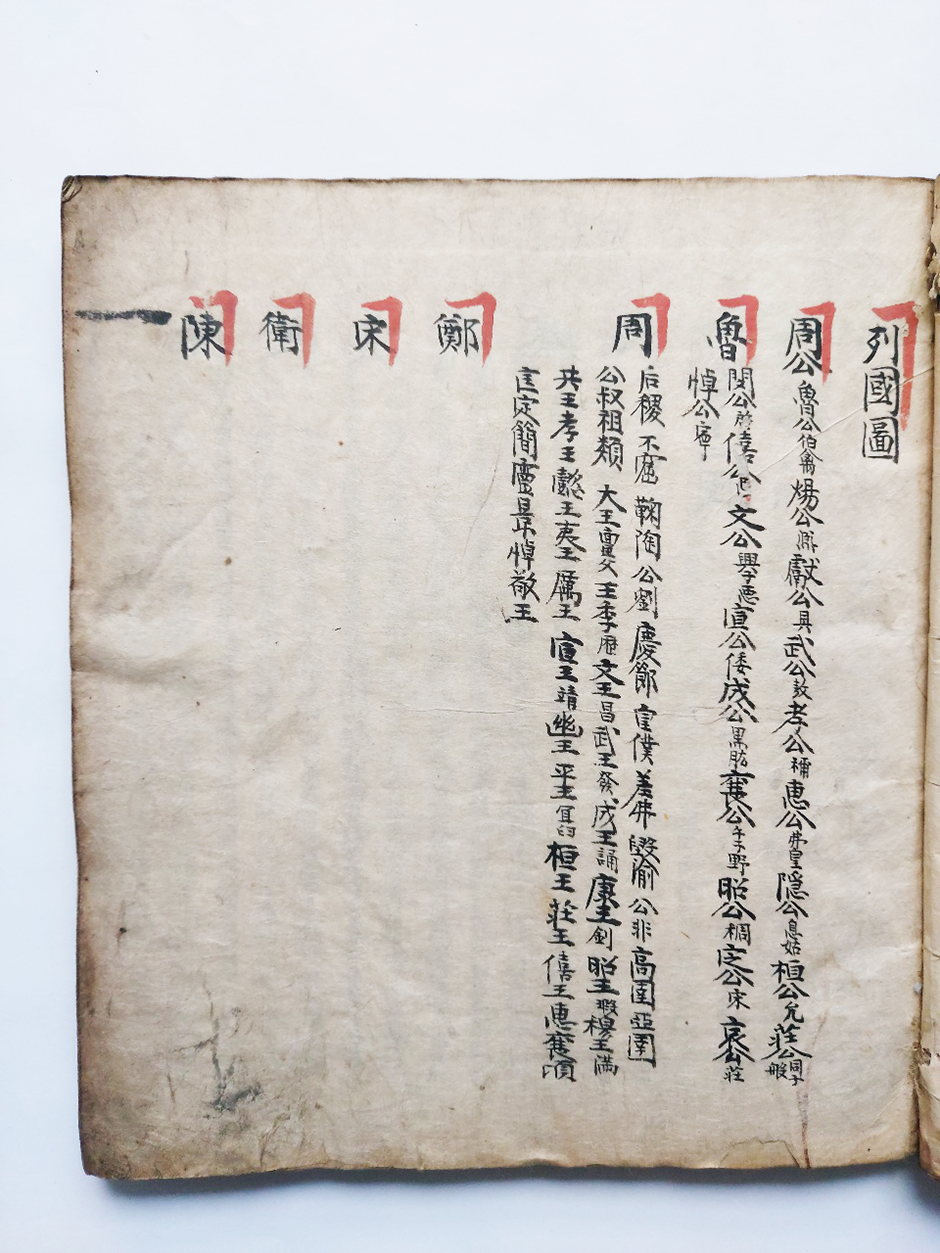 列國圖
周公 魯公伯禽 煬公熙 獻公具 武公敖 孝公稱 惠公弗皇 隱公息姑 桓公允 莊公同子般
魯 閔公啟 僖公申 文公興 惡 宣公倭 成公黑肱 襄公午子野 昭公稠 定公宋 哀公莊
悼公寧
周 后稷 不窋 鞠陶 公劉 慶節 皇僕 差弗 毀渝 公非 高圉 亞圉
公叔祖類 大王亶父 王季歷 文王昌 武王發 成王誦 康王釗 昭王瑕 穆王滿
共王 孝王 懿王 夷王 厲王 宣王靖 幽王 平王宜臼 桓王 莊王 僖王 惠 襄 頃
匡 定 簡 靈 景 悼 敬王
鄭
宋
衛
陳